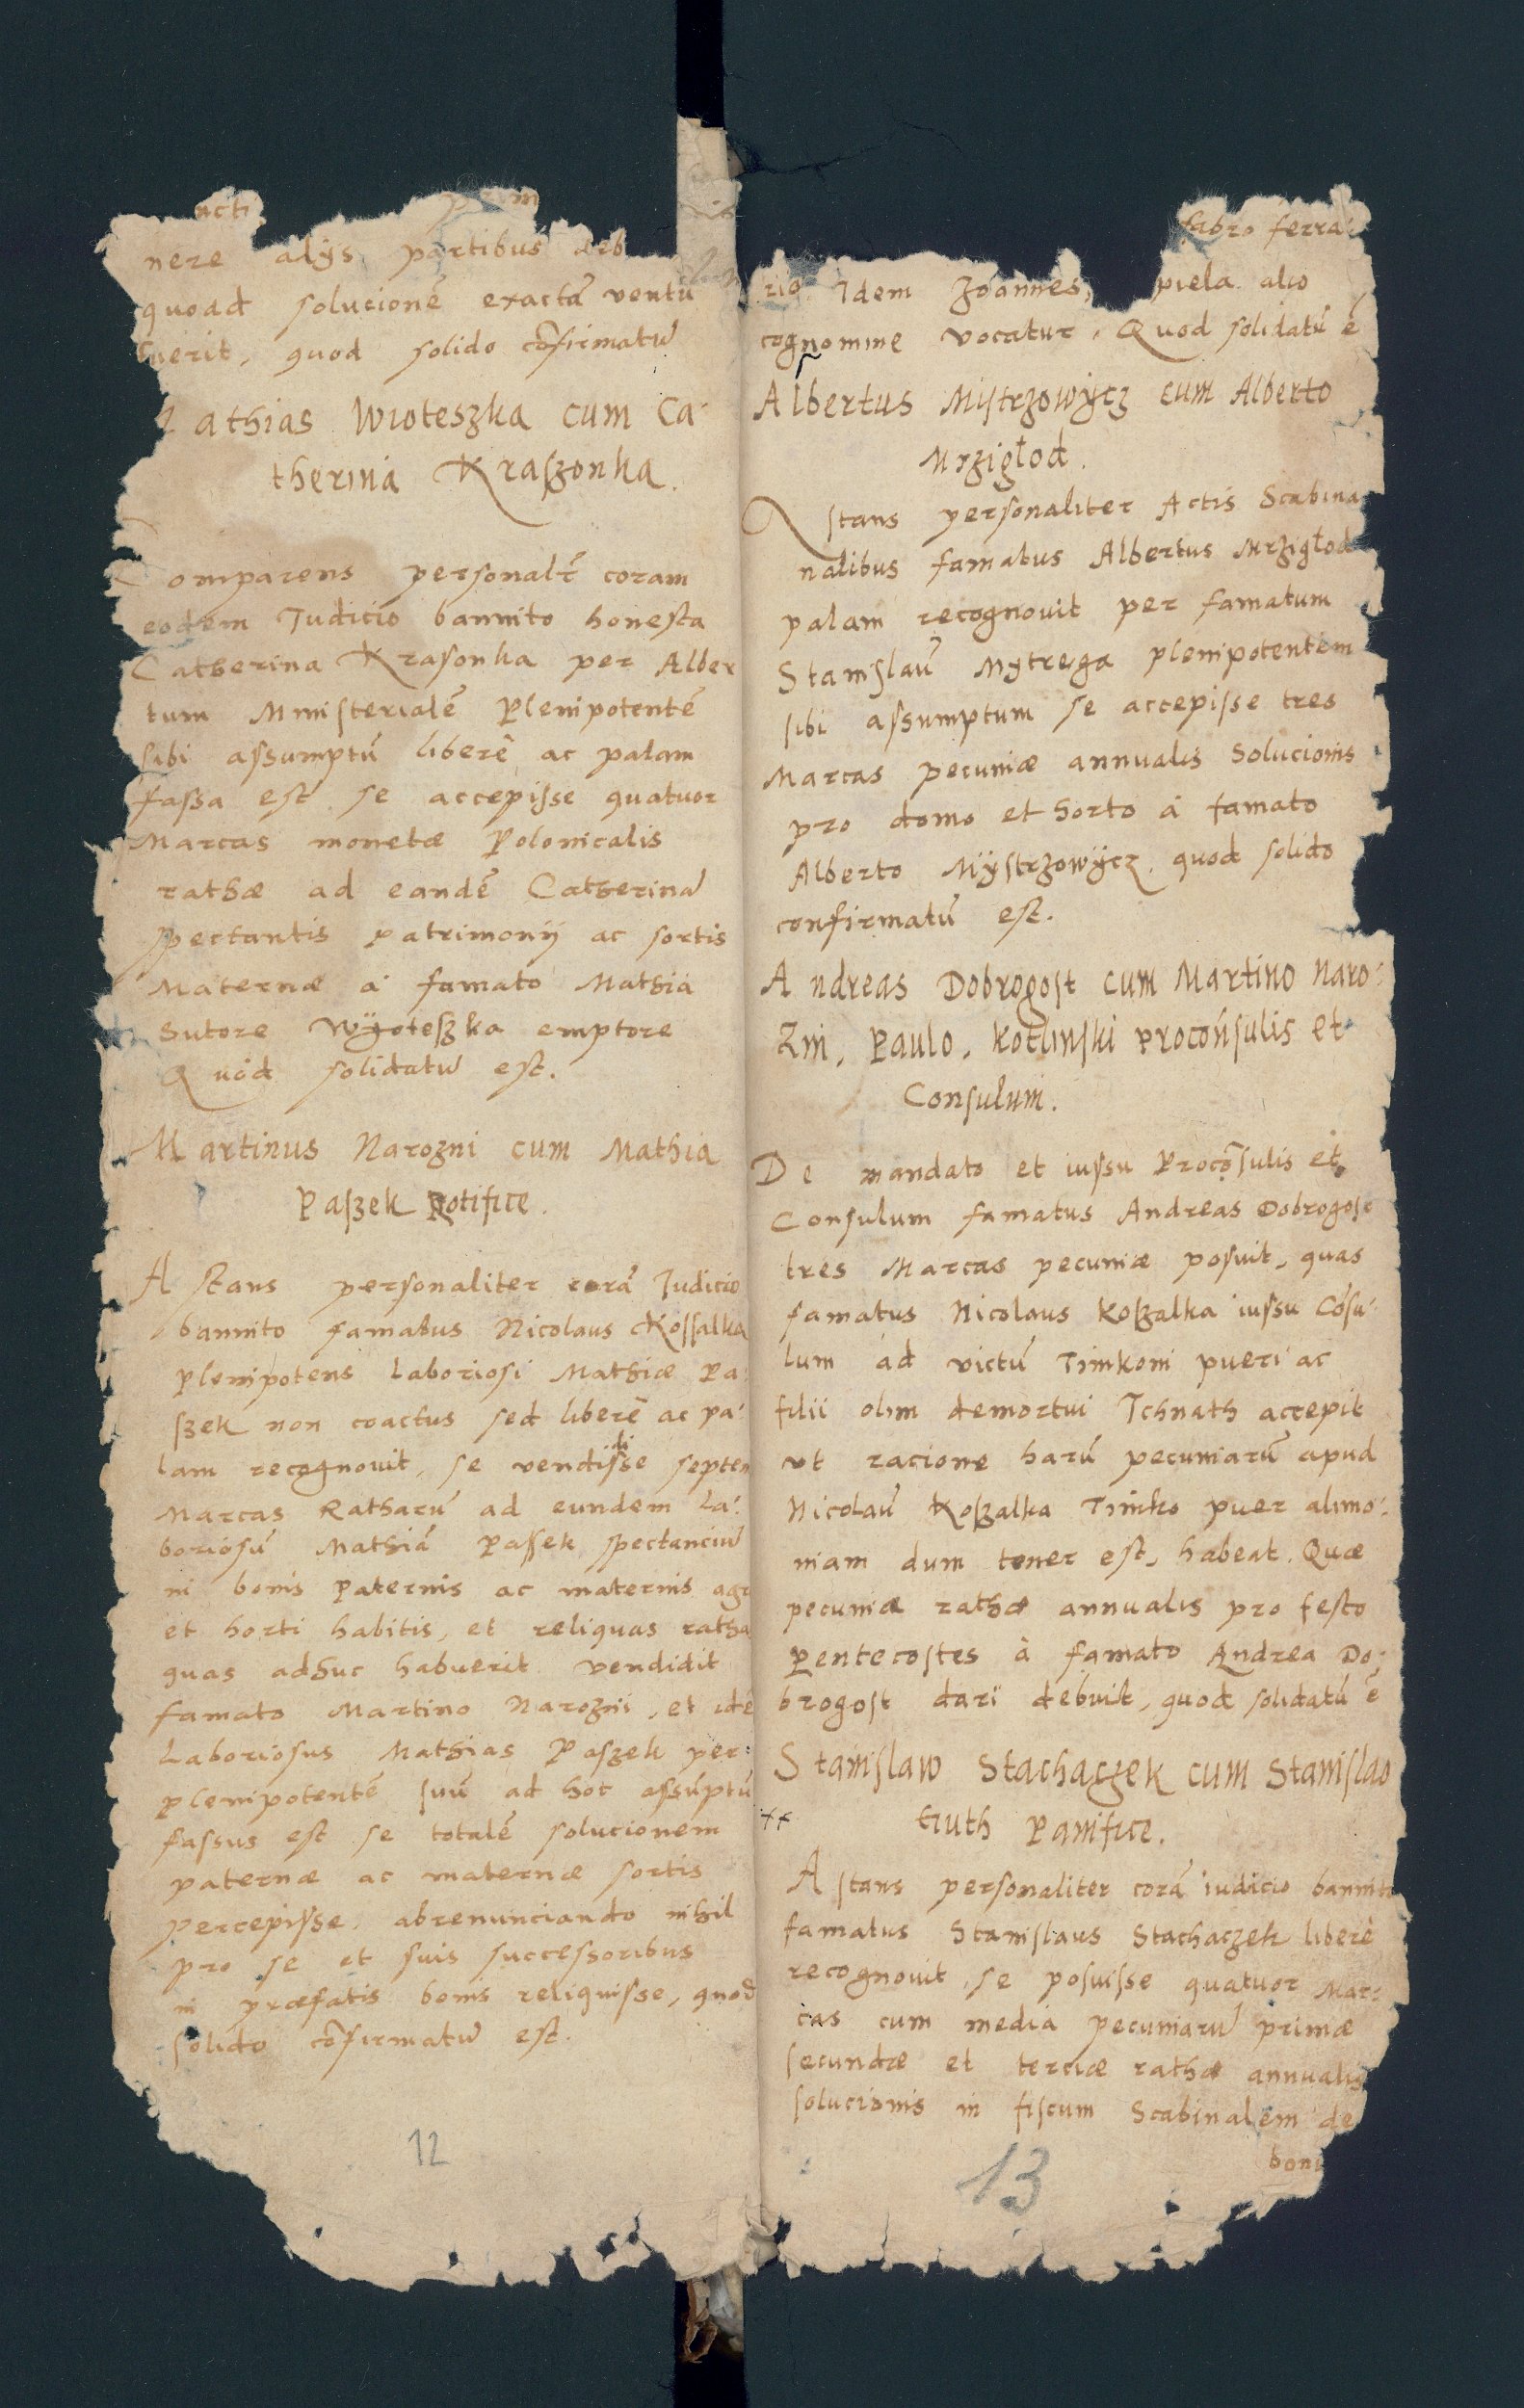 nere alijs partibus deb
quoad solucionē exactā ventū
fuerit, quod solido cōfirmatū
Mathias Wioteszka cum Ca-
therina Kraszonka.
Comparens personalr̄ coram
eodem Iudicio bannito honesta
Catherina Krasonka per Alber
tum Ministerialē Plenipotentē
sibi assumptū liberè ac palam
fassa est se accepisse quatuor
Marcas monetæ Polonicalis
rathæ ad eandē Catherinā
spectantis patrimonij ac sortis
Maternæ a famato Mathia
Sutore Wÿoteszka emptore
Quod solidatū est.
Martinus Narozni cum Mathia
Paszek Potifice.
Astans personaliter corā Iudicio
bannito famatus Nicolaus Kossalka
Plenipotens Laboriosi Mathiæ Pa:
szek non coactus sed liberè ac pa:
lam recognouit, se vendidisse septem
Marcas Ratharū ad eundem La:
boriosū Mathiā Passek spectanciū
in bonis Paternis ac maternis agr
et horti habitis, et reliquas ratha
quas adhuc habuerit vendidit
famato Martino Narozni, et idē
Laboriosus Mathias Paszek per:
plenipotentē suū ad hoc assūptū
fassus est se totalē solucionem
paternæ ac maternæ sortis
percepisse. abrenunciando nihil
pro se et suis successoribus
in præfatis bonis reliquisse, quod
solido cōfirmatū est.
12
fabro ferra:
rio Idem Joannes, piela alio
cognomine vocatur. Quod solidatū ē
Albertus Mistrzowÿcz cum Alberto
Mrzigłod.
Astans personaliter Actis Scabina
nalibus famatus Albertus Mrzigłod
palam recognouit per famatum
Stanislaū Mytrega plenipotentem
sibi assumptum se accepisse tres
Marcas pecuniæ annualis Solucionis
pro domo et horto à famato
Alberto Mÿstrzowÿcz. quod solido
confirmatū est.
Andreas Dobrogost cum Martino Naro:
Zni, Paulo, Kotlinski Proconsulis et
Consulum.
De mandato et iussu Procōsulis et
Consulum famatus Andreas Dobrogost
tres Marcas pecuniæ posuit, quas
famatus Nicolaus Koszalka iussu Cōsu:
lum ad victū Timkoni pueri ac
filii olim demortui Ichnath accepit
vt racione harū pecuniarū apud
Nicolaū Koszalka Timko puer alimo:
niam dum tener est, habeat. Quæ
pecuniæ rathæ annualis pro festo
Pentecostes à famato Andrea Do:
brogost dari debuit, quod solidatū ē
Stanislaw Stachaczek cum Stanislao
++ tiuth Panifice.
Astans personaliter corā iudicio bannito
famatus Stanislaus Stachaczek liberè
recognouit, se posuisse quatuor Mar:
cas cum media pecuniarū primæ
secundæ et terciæ rathæ annualis
solucionis in fiscum Scabinalem de
boni
13